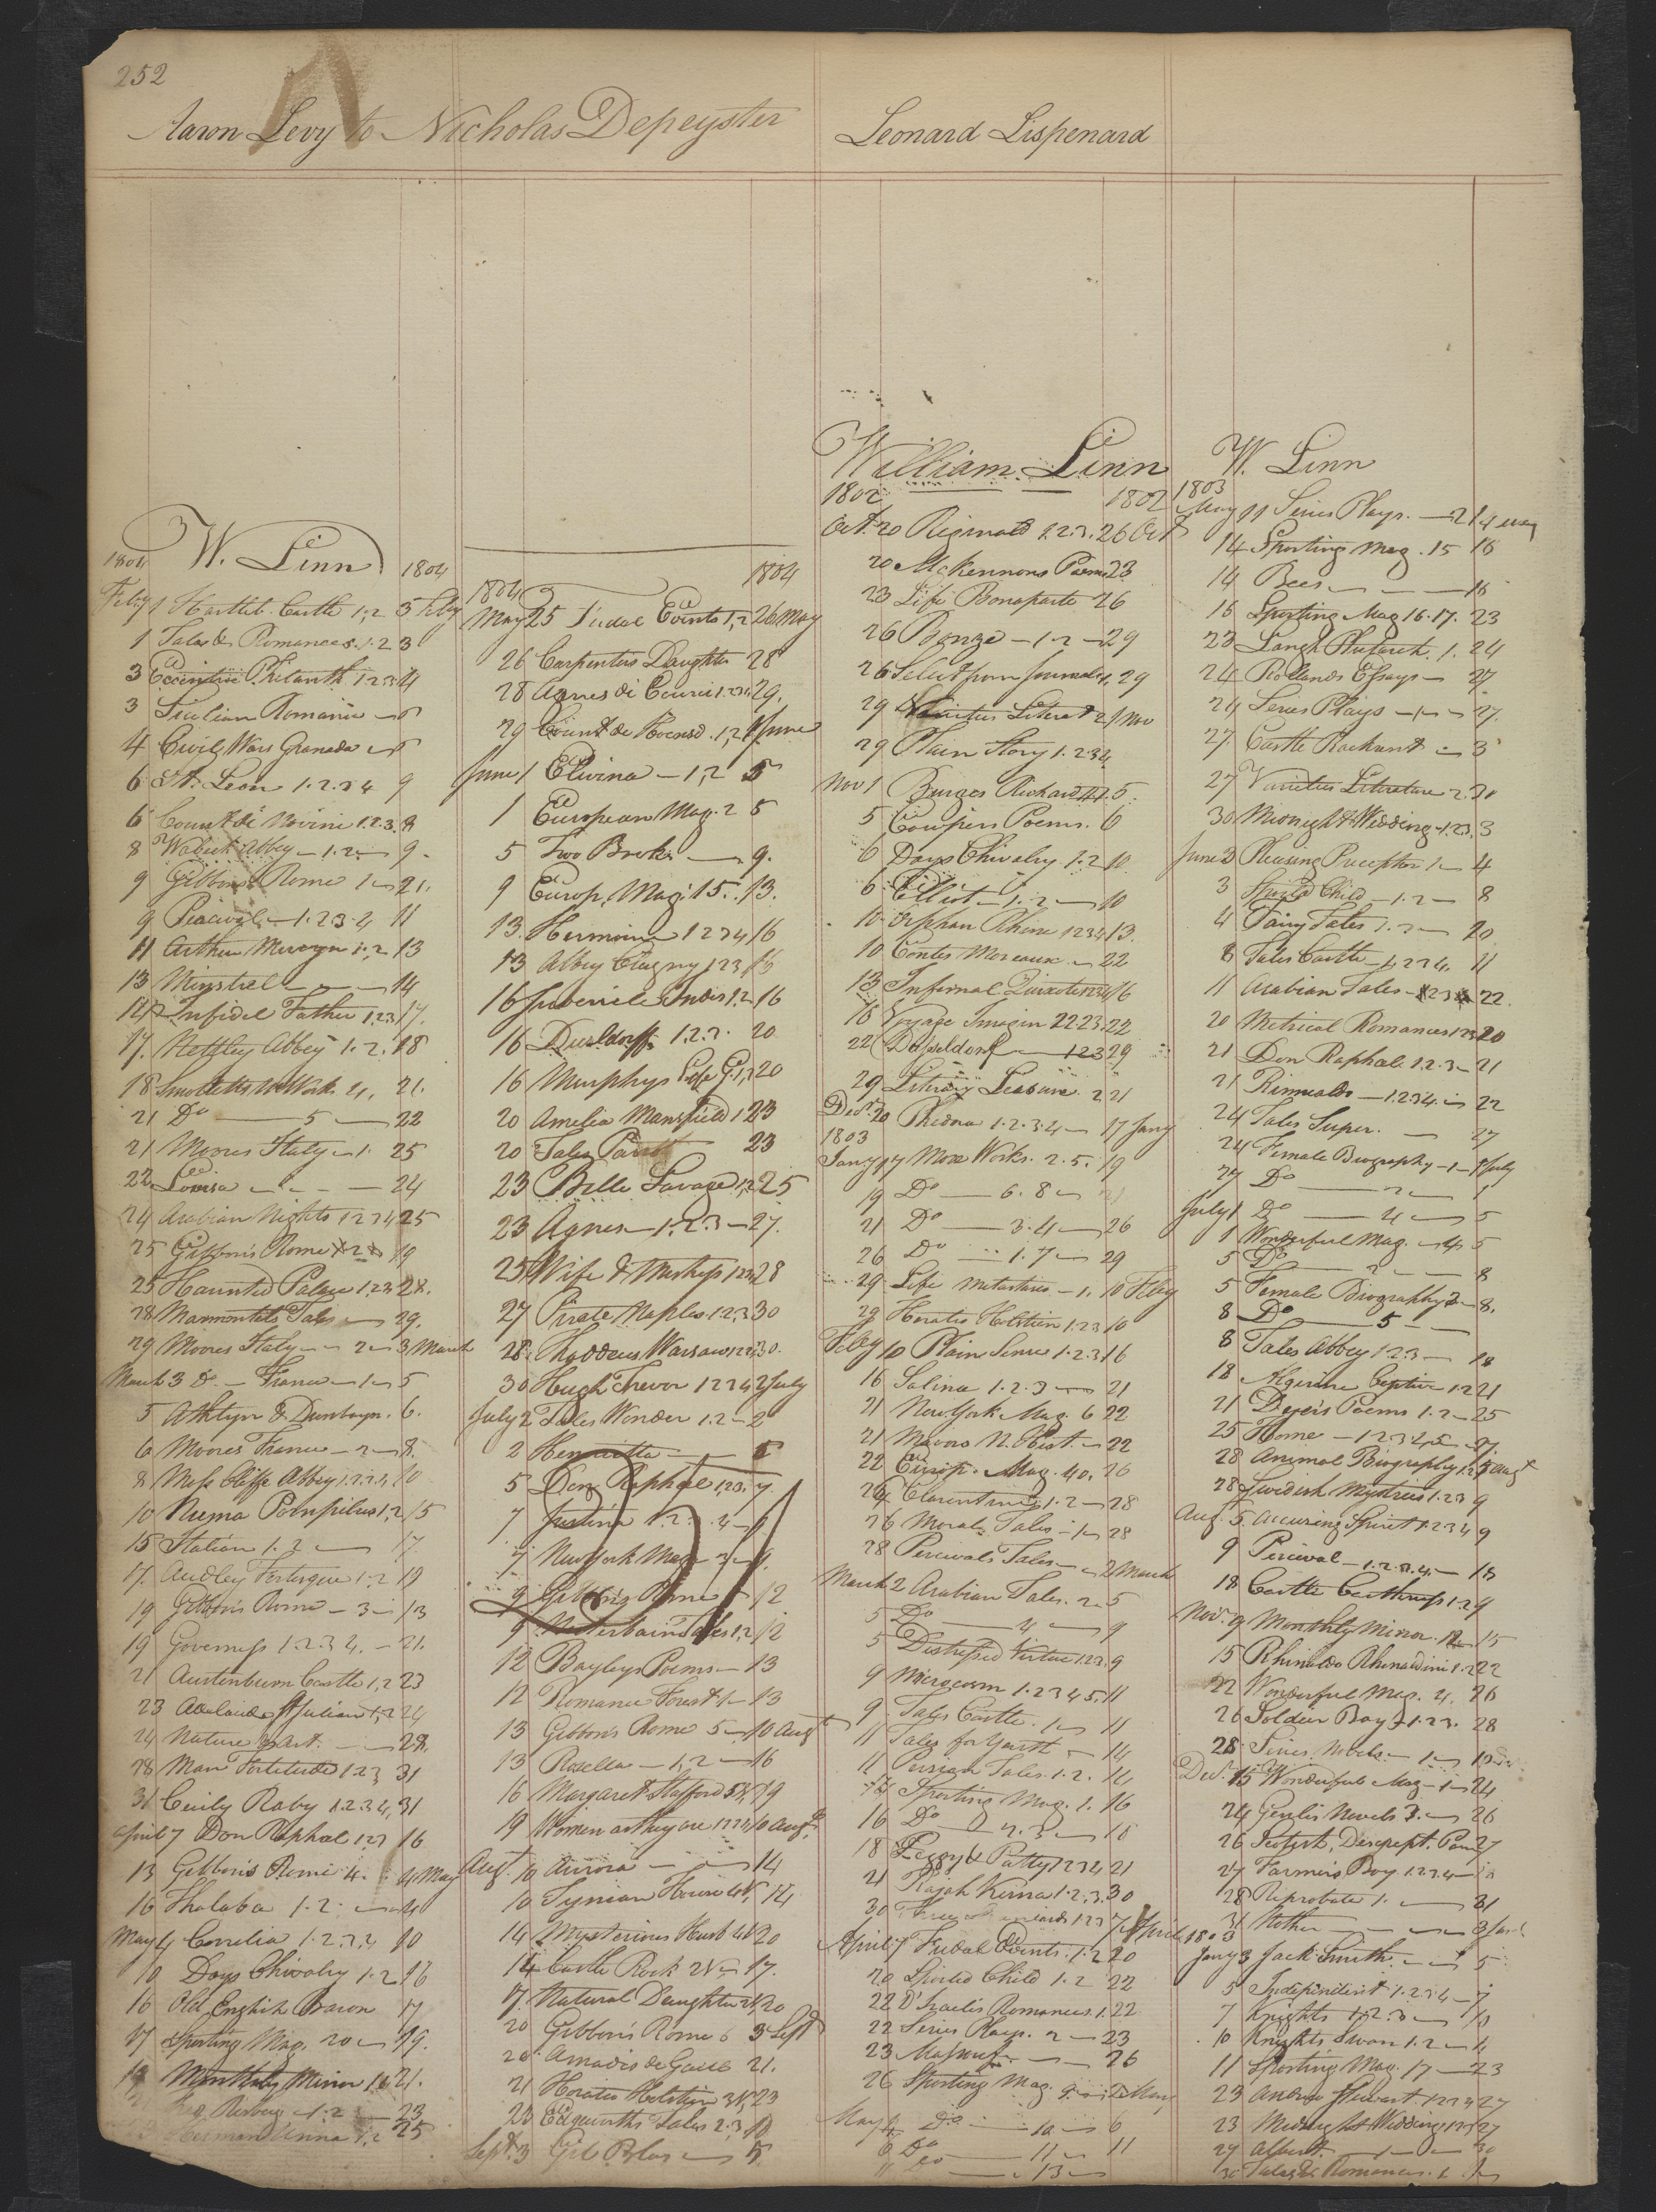 252
Aaron Levy to Nicholas Depeyster
Leonard Lispenard
W. Linn
1804 1804
Feby 1 Castle 1,2 3 Feby
1 Tales & Romances. 1.2 3
3 Eccentric Philanth 1 2 3 4
3 Sicilian Romance
4 Civil Wars Granada
6 St. Leon 1.2.3 4 9
6 Count di Novini 1.2.3. 8
8 Abbey - 1.2 - 9.
9 Gibbons Rome 1 21.
9 - 1.2 3 4 11
11 Arthur Mervyn 1.2 13
13 Minstrel 14
14 Infidel Father 1.2 3 17.
17. Nettley Abbey 1.2. 18
18 Smolletts Works 4. 21.
21 Do 5 22
21 Moores Italy 1. 25
22 Louisa 24
24 Arabian Nights 1 2 3 4 25
25 Gibbon's Rome 2 19
25 Haunted Palace 1.2 3 28.
28 Marmontels Tales 29.
29 Moores Italy 2 3 March
March 3 Do. France 1 5
5 Athlyn & Dunbayn. 6.
6 Moores France - 2 8.
8 Abbey 1.2.3.4 10
10 Numa Pompilius 1,2 15
15 Station 1.2 17.
17. Audley Fortesque 1.2 19
19 Gibbon's Rome - 3 13
19 Governess 1.2 3 4. 21.
21 Austenburn Castle 1,2 23
23 Adelaide St Julian 1,2 24
24 Nature & Art. 28.
28 Man Fortitude 1 2 3 31
31 Cecily Raby 1.2 3 4, 31
April 7 Don Raphael 1 2 3 16
13 Gibbon's Rome 4. 4 May
16 Thalaba 1.2. 4
May 4 Cornelia 1.2.3,4 10
10 Days Chivalry 1.2 16
16 Old English Baron 17
17 Sporting Mag. 20 19.
19 Monthly Mirror 16 21.
1.2 23
Herman & Unna 1.2 25
1804 1804
May 25 Feudal Events 1,2 26 May
26 Carpenters Daughter 28
28 Agnes di Courci 1.2 3 4 29.
29 Count de Hoensd. 1,2 1 June
June 1 Elvina - 1,2 5
1 European Mag. 2 5
5 Two Brok. 9.
9 Europ. Mag. 15. 13.
13. Hermione 1 2 3 4 16
13 Abbey Clugny 1 2 3 16
16 Juvenile Indis 1.2 16
16 Dusldorff 1.2.3. 20
16 Murphys Life G. 1,2 20
20 Amelia Mansfield 1 23
20 Tales Parrot 23
23 Belle Savage 1,2 25
23 Agnes - 1.2.3 - 27.
25 Wife & Mistress 1 2 3 4 28
27 Pirate Naples 1.2,3 30
28. Thaddeus Warsaw 1 2 3 4 30.
30 Hugh Trevor 1 2 3 4 2 July
July 2 Tales Wonder 1.2 2
2 Henrietta 5
5 Don Raphael 1 2 3. 7.
7 Justina 1.2 4 9
7 New York Mag. 3 9.
9 Gibbon's Rome 12
9 Winterbain Tales 1,2 12
12 Bayleys Poems 13
12 Romance Forest 1 13
13 Gibbon's Rome 5 10 Augt
13 Rosella - 1,2 16
16 Margaret Stafford 19
19 Women as they are 1 2 3 4 10 Augt
Augt 10 Aurora 14
10 Tynian House 14
14 Mysterious Husb 4 V 20
14 Castle Rock 2 V 17.
17. Natural Daughter 2 V 20
20 Gibbon's Rome 6 3 Sept
20 Amadis de Gaul 21.
21 Horatio Holstein 3 V 23
23 Edgworths Tales 2.3 10
Sept. 3 Gil Blas 5
William Linn
1802 1802
Oct. 20 Reginald 1.2.3. 26 Oct
20 McKennons Poems 23
23 Life Bonaparte 26
26 Bonze - 1.2 - 29
26 Select from Journals 1. 29
29 Varieties Literat 2 1 Nov
29 Plain Story 1.2 3 4
Nov 1 Burges Richard 5.
5 Cowpers Poems. 6
6 Days Chivalry 1.2 10
6. Elliot 1.2 10
10 Orphan Rhine 1 2 3 4 13.
10 Contes Moreaux 22
13 Infernal Quixote 1 2 3 4 16
16 Voyage Imagin 22.23. 22
22 Dusseldorf 1 2 3 29
29 Literary Leasure. 2 21
Decr 20 Phedora 1.2.3 4 17 Jany
1803
Jany 17 More Works. 2.5. 19
19 Do 6. 8 21
21 Do 3.4 26
26 Do 1.7 29
29 Life Metastasio - 1. 10 Feby
29 Horatio Holstein 1.2 3 10
Feby 10 Plain Sense 1.2.3 16
16 Salina 1.2.3 21
21 New York Mag. 6 22
21 Mavors N. Hist. 22
22 Europ. Mag. 40. 26
24 Clarentine 1.2 28
26 Moral Tales 1 28
28 Percivals Tales 2 March
March 2 Arabian Tales. 2 5
5 Do 4 9
5 Distressed Virtue 1 2 3. 9
9 Microcosm 1.2 3 4 5. 11
9 Tales Castle. 1 11
11 Tales for Youth 14
11 Persian Tales. 1.2. 14
14 Sporting Mag. 1. 16
16 Do 2.3 18
18 Peggy & Patty 1 2 3 4 21
21 Rajah Kisna 1.2.3. 30
30 1 2 3 7 April
April 7 Feudal Events. 1.2 20
20 Spoiled Child 1.2 22
22 D'Israelis Romances. 1. 22
22 Series Plays. 2 23
23 26
26 Sporting Mag. 9 2 May
May 2 Do 10 6
6 Do 11 11
11 Do 13
W. Linn
1803
May 11 Series Plays. 2 14 May
14 Sporting Mag. 15 16
14 Bees 16
16 Sporting Mag 16.17. 23
23 Langh Plutarch. 1. 24
24 Rollands Essays 27
24 Series Plays 1 27.
27 Castle Rackrent 3
27 Varieties Literature 2. 31
30 Midnight Wedding 1.2 3. 3
June 3 Pleasing Preceptor 1 4
3 Spoiled Child - 1.2 8
4 Fairy Tales 1.2 20
8 Tales Castle 1.2 3 4. 11
11 Arabian Tales 1 2 3 4 22.
20 Metrical Romances 1 2 3 20
21 Don Raphael 1.2.3 21
21 Rinualdo 1.2 3 4. 22
24 Tales Super. 27
24 Female Biography 1 1 July
27 Do 2 1
July 1 Do 4 5
1 Wonderful Mag. 4 5
5 Do 2 8
5 Female Biography 3 8.
8 Do 5
8 Tales Abbey 1.2 3 18
18 Algerine Captive 1.2 21
21 Dyer's Poems 1.2 25
25 Home 1.2 3 4,5 27.
28 Animal Biography 1.2 5 Augt
28 Swedish Mysteries 1.2 3 9
Aug. 5 Accusing Spirit 1.2 3 4 9
9 Percival - 1.2.3.4 18
18 Castle Caithness 1.2 9
Nov. 9 Monthly Mirror. 12 15
15 Rhinaldo Rhinaldini 1.2 22
22 Wonderful Mag. 4. 26
26 Soldier Boy 1.2 3. 28
28 Series Novels 1
Decr. 15 Wonderful Mag 1 24
24 Genlis Novels 3. 26
26 Scotish, Descript. Poem 27
27 Farmers Boy 1.2 3 4
28 Reprobate 1. 31
31 Mother 3 Jany
1803
Jany 3 Jack Smith. 5
5 Independent 1.2 3 4 7
7 Knights 1.2.3 10
10 Knights Swan 1.2 4
11 Sporting Mag. 17 23
23 Andrew Stewart 1 2 3 4 27
23 Midnight Wedding 1 2 3 27
27 Albert. 30
30 Tales & Romances. 1